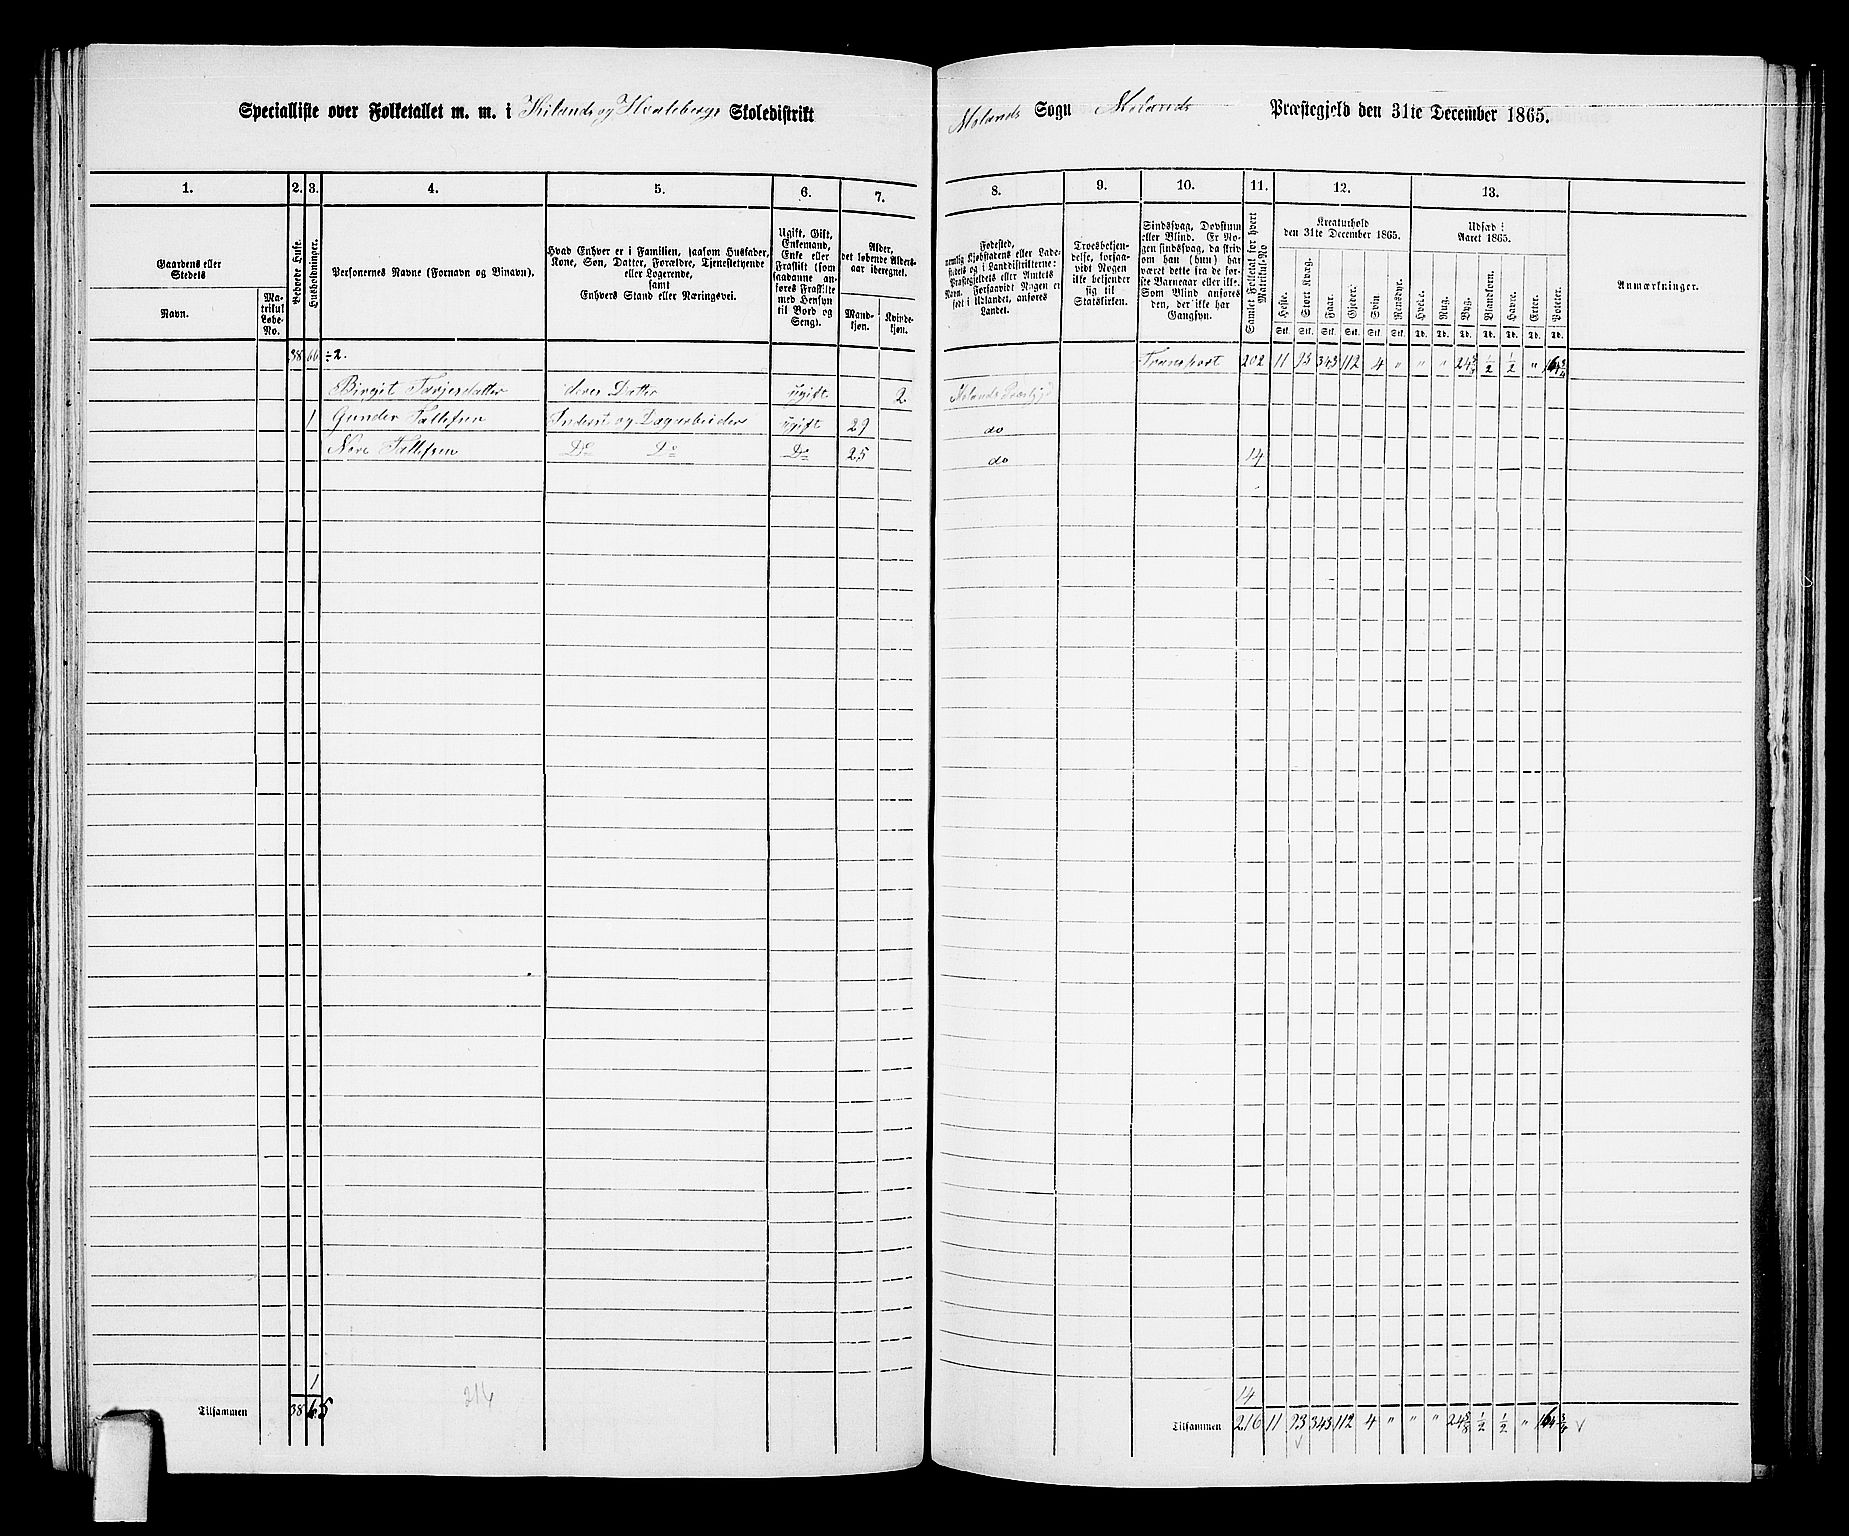 Specialliste over Folketallet m. m. i Kilands og Hvalebergs Skoledistrikt
Molands Sogn Molands Præstegjeld den 31te December 1865.
1. 2. 3. 4. 5. 6. 7.
Gaardens eller Stedets
Navn.
Matrikul Løbe-No.
Beboede Huse.
Husholdninger.
Personernes Navne (Fornavn og Binavn).
Hvad Enhver er i Familien, saasom Husfader,
Kone, Søn, Datter, Forældre, Tjenestetyende
eller Logerende,
samt
Enhvers Stand eller Næringsvei.
Ugift, Gift,
Enkemand,
Enke eller
Fraskilt (som
saadanne an-
føres Fraskilte
med Hensyn
til Bord og
Seng).
Alder,
det løbende Alders-
aar iberegnet.
Mand-
kjøn.
Kvinde-
kjøn.
38 66 ÷2.
Birgit Tarjersdatter deres Datter ugift 2
1 Gunder Tallefsen Inderst og Dagarbeider ugift 29
Tallefsen Do Do Do 25
1
Tilsammen 38 65
216
8. 9. 10. 11. 12. 13.
Fødested,
nemlig Kjøbstadens eller Lade-
stedets og i Landdistrikterne:
Præstegjeldets eller Amtets
Navn. Forsaavidt Nogen er
født i Udlandet, anføres
Landet.
Troesbekjen-
delse, forsaa-
vidt Nogen
ikke bekjender
sig til
Statskirken.
Sindssvag, Døvstum
eller Blind. Er No-
gen sindssvag, da skriv
om han (hun) har
været dette fra de før-
ste Barneaar eller ikke.
Som Blind anføres
den, der ikke har
Gangsyn.
Samlet Folketal for hvert
Matrikul-No
Kreaturhold
den 31te December 1865.
Heste. Stort Kvæg. Faar. Gjeder. Svin. Rensdyr.
Stk. Stk. Stk. Stk. Stk. Stk.
Udsæd i
Aaret 1865.
Hvede. Rug. Byg. Blandkorn. Havre. Erter. Poteter.
Td. Td. Td. Td. Td. Td. Td.
Anmærkninger.
Transport 202 11 93 343 112 4 " " " 24 3/8 1/2 1/2 " 164 3/4
Molands Præstgjd
do
do 14
14
Tilsammen 216 11 93 343 112 4 " " " 24 3/8 1/2 1/2 " 164 3/4